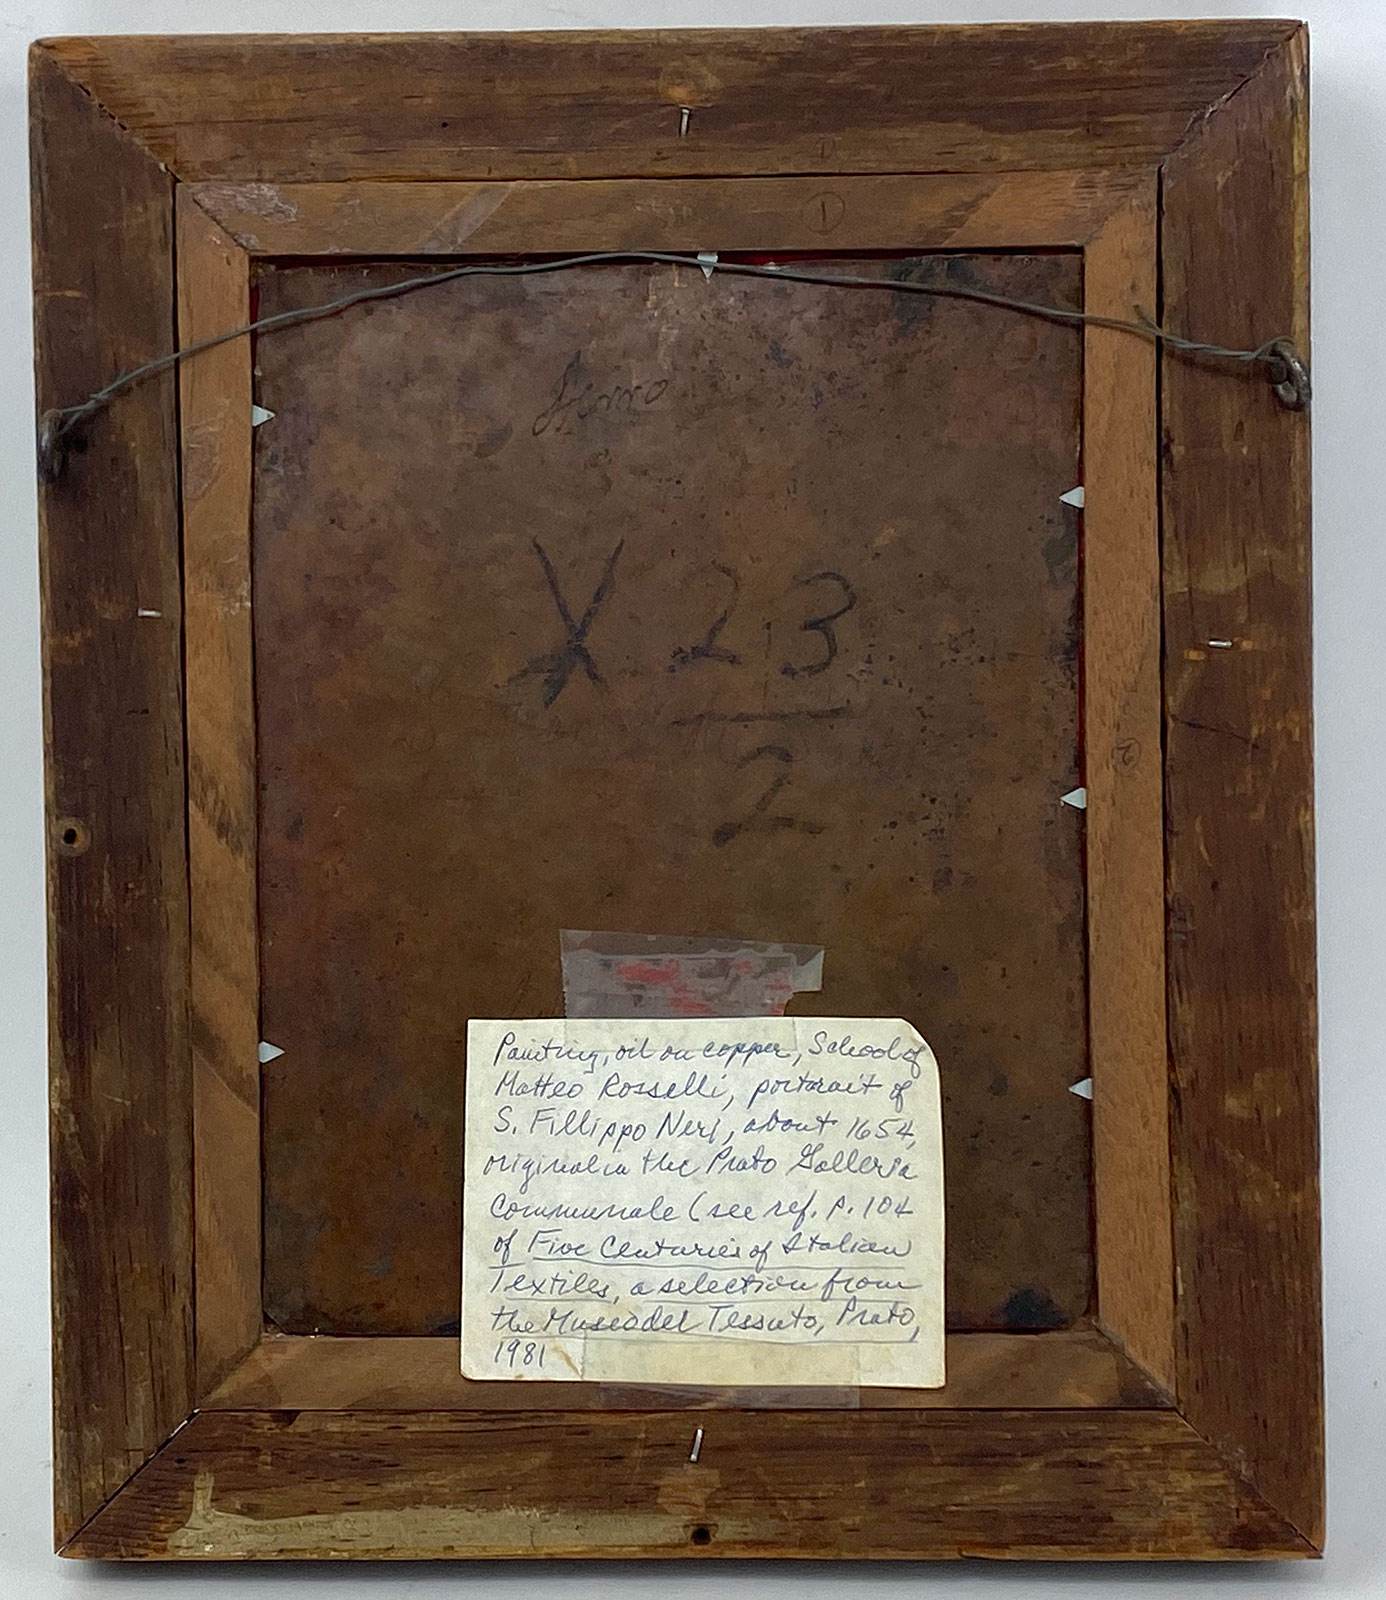 1
X 23
2
2
Painting, oil on copper, School of
Matteo Rosselli, portrait of
S. Fillippo Neri, about 1654,
original in the Prato Galleria
Communale (see ref. p. 104
of Five Centuries of Italian
Textiles, a selection from
the Museo del Tessuto, Prato,
1981